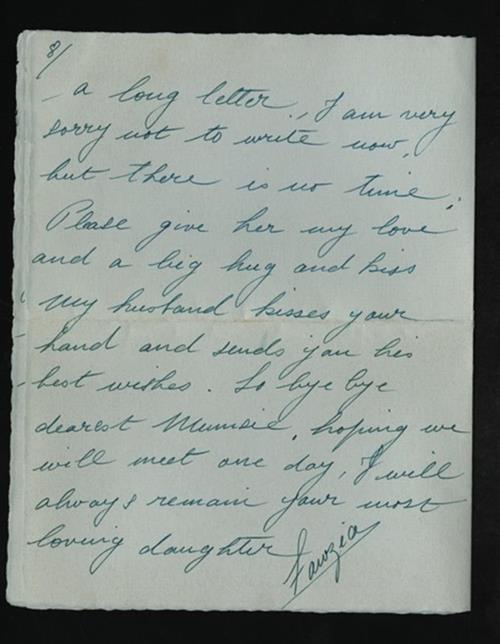 8/
- a long letter, I am very
sorry not to write now,
but there is no time.
Please give her my love
and a big hug and kiss
My husband kisses your
hand and sends you his
best wishes. So bye bye
dearest Mumsie, hoping we
will meet one day, I will
always remain your most
loving daughter
Fawzia